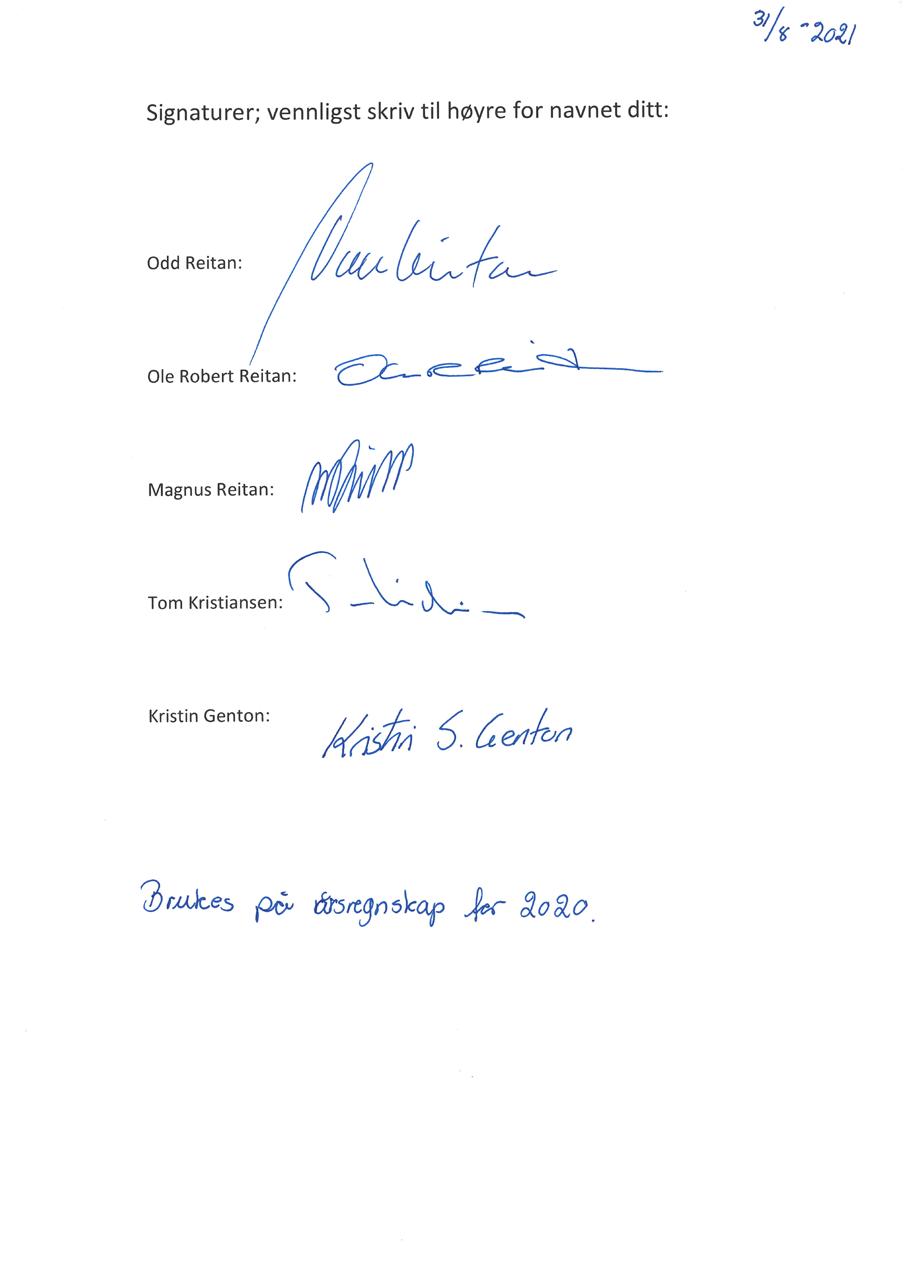 31/8-2021
Signaturer; vennligst skriv til høyre for navnet ditt:
Odd Reitan:
Ole Robert Reitan:
Magnus Reitan:
Tom Kristiansen:
Kristin Genton:
Kristin S. Genton
Brukes på årsregnskap for 2020.